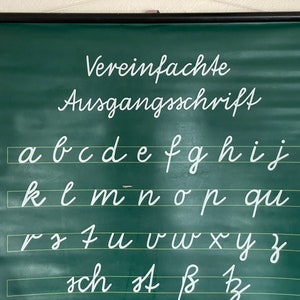 Vereinfachte
Ausgangsschrift
a b c d e f g h i j
k l m n o p qu
r s t u v w x y z
sch st ß tz